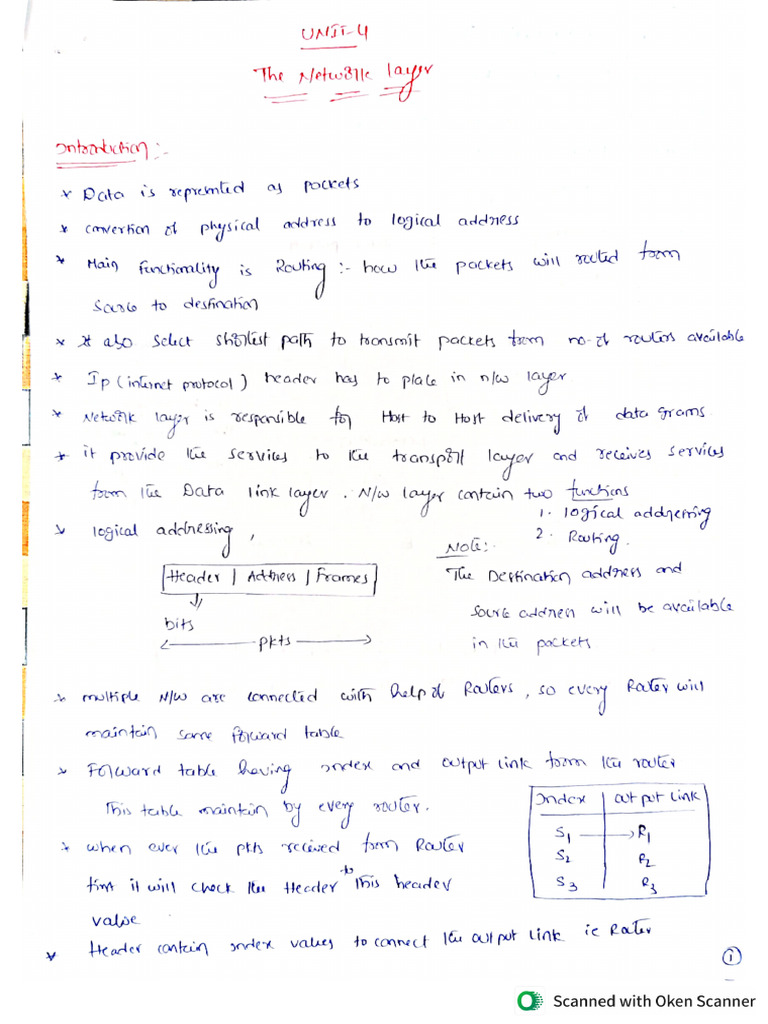 UNIT-4
The Network layer
Introduction :-
* Data is represnted as pockets
* convertion of physical address to logical address
* Main Functionality is Routing :- how the packets will routed from
Source to destination
* It also select shortest path to transmit packets from no. of routers available
* Ip (internet protocol) header has to place in n/w layer
* Network layer is responsible for Host to Host delivery of data grams
* it provide the services to the transport layer and receives services
from the Data link layer. N/w layer contain two functions
1. logical addressing
2. Routing.
* logical addressing,
Header | Address | Frames
bits
pkts
Note:-
The Destination address and
source address will be available
in the packets
* multiple N/w are connected with help of Routers, so every Router will
maintain some forward table
* Forward table having index and output link from the router
This table maintain by every router.
Index | out put link
S1 → R1
S2 R2
S3 R3
* when ever the pkts received from Router
first it will check the Header to this header
value
* Header contain index values to connect the output link ie Router
1
Scanned with Oken Scanner